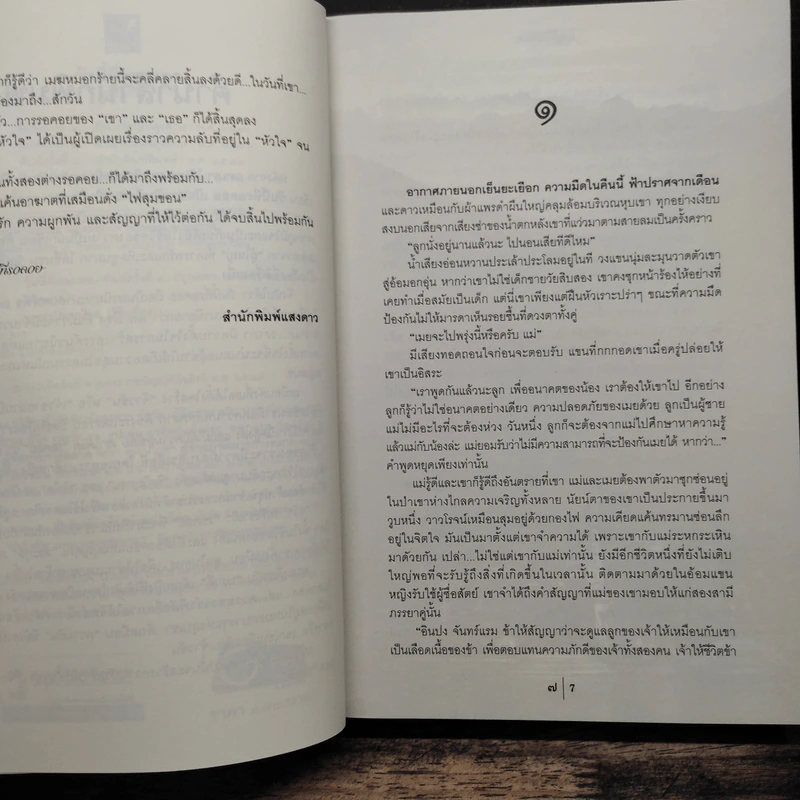 ก็รู้ดีว่า เมฆหมอกร้ายนี้จะคลี่คลายสิ้นลงด้วยดี...ในวันที่เขา...
องมาถึง...สักวัน
ว...การรอคอยของ “เขา” และ “เธอ” ก็ได้สิ้นสุดลง
หัวใจ” ได้เป็นผู้เปิดเผยเรื่องราวความลับที่อยู่ใน “หัวใจ” จน
นทั้งสองต่างรอคอย...ก็ได้มาถึงพร้อมกับ...
แค้นอาฆาตที่เสมือนดั่ง “ไฟสุมขอน”
รัก ความผูกพัน และสัญญาที่ให้ไว้ต่อกัน ได้จบสิ้นไปพร้อมกัน
ที่รอคอย
สำนักพิมพ์แสงดาว
๑
อากาศภายนอกเย็นยะเยือก ความมืดในคืนนี้ ฟ้าปราศจากเดือน
และดาวเหมือนกับผ้าแพรดำผืนใหญ่คลุมล้อมบริเวณหุบเขา ทุกอย่างเงียบ
สงบนอกเสียจากเสียงซ่าของน้ำตกหลังเขาที่แว่วมาตามสายลมเป็นครั้งคราว
“ลูกนั่งอยู่นานแล้วนะ ไปนอนเสียทีดีไหม”
น้ำเสียงอ่อนหวานประเล้าประโลมอยู่ในที วงแขนนุ่มละมุนวาดตัวเขา
สู่อ้อมอกอุ่น หากว่าเขาไม่ใช่เด็กชายวัยสิบสอง เขาคงซุกหน้าร้องไห้อย่างที่
เคยทำเมื่อสมัยเป็นเด็ก แต่นี่เขาเพียงแต่ฝืนหัวเราะปร่าๆ ขณะที่ความมืด
ป้องกันไม่ให้มารดาเห็นรอยชื้นที่ดวงตาทั้งคู่
“เมยจะไปพรุ่งนี้หรือครับ แม่”
มีเสียงทอดถอนใจก่อนจะตอบรับ แขนที่กกกอดเขาเมื่อครู่ปล่อยให้
เขาเป็นอิสระ
“เราพูดกันแล้วนะลูก เพื่ออนาคตของน้อง เราต้องให้เขาไป อีกอย่าง
ลูกก็รู้ว่าไม่ใช่อนาคตอย่างเดียว ความปลอดภัยของเมยด้วย ลูกเป็นผู้ชาย
แม่ไม่มีอะไรที่จะต้องห่วง วันหนึ่ง ลูกก็จะต้องจากแม่ไปศึกษาหาความรู้
แล้วแม่กับน้องล่ะ แม่ยอมรับว่าไม่มีความสามารถที่จะป้องกันเมยได้ หากว่า...”
คำพูดหยุดเพียงเท่านั้น
แม่รู้ดีและเขาก็รู้ดีถึงอันตรายที่เขา แม่และเมยต้องพาตัวมาซุกซ่อนอยู่
ในป่าเขาห่างไกลความเจริญทั้งหลาย นัยน์ตาของเขาเป็นประกายขึ้นมา
วูบหนึ่ง วาวโรจน์เหมือนสุมอยู่ด้วยกองไฟ ความเคียดแค้นทรมานซ่อนลึก
อยู่ในจิตใจ มันเป็นมาตั้งแต่เขาจำความได้ เพราะเขากับแม่ระหกระเหิน
มาด้วยกัน เปล่า...ไม่ใช่แต่เขากับแม่เท่านั้น ยังมีอีกชีวิตหนึ่งที่ยังไม่เติบ
ใหญ่พอที่จะรับรู้ถึงสิ่งที่เกิดขึ้นในเวลานั้น ติดตามมาด้วยในอ้อมแขน
หญิงรับใช้ผู้ซื่อสัตย์ เขาจำได้ถึงคำสัญญาที่แม่ของเขามอบให้แก่สองสามี
ภรรยาคู่นั้น
“อินปง จันทร์แรม ข้าให้สัญญาว่าจะดูแลลูกของเจ้าให้เหมือนกับเขา
เป็นเลือดเนื้อของข้า เพื่อตอบแทนความภักดีของเจ้าทั้งสองคน เจ้าให้ชีวิตข้า
๗ | 7